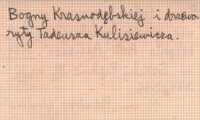 Bogny Krasnodębskiej i drzewo
ryty Tadeusza Kulisiewicza.